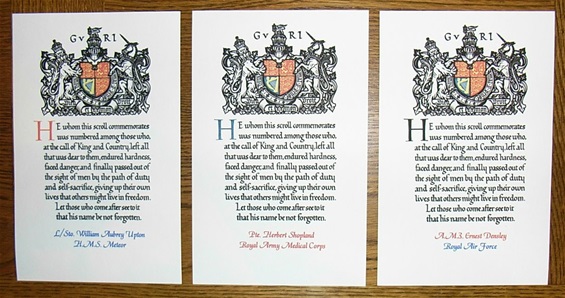 G V R I
HE whom this scroll commemorates
was numbered among those who,
at the call of King and Country, left all
that was dear to them, endured hardness,
faced danger, and finally passed out of
the sight of men by the path of duty
and self-sacrifice, giving up their own
lives that others might live in freedom.
Let those who come after see to it
that his name be not forgotten.
L/Sto. William Aubrey Upton
H.M.S. Meteor
G V R I
HE whom this scroll commemorates
was numbered among those who,
at the call of King and Country, left all
that was dear to them, endured hardness,
faced danger, and finally passed out of
the sight of men by the path of duty
and self-sacrifice, giving up their own
lives that others might live in freedom.
Let those who come after see to it
that his name be not forgotten.
Pte. Herbert Shopland
Royal Army Medical Corps
G V R I
HE whom this scroll commemorates
was numbered among those who,
at the call of King and Country, left all
that was dear to them, endured hardness,
faced danger, and finally passed out of
the sight of men by the path of duty
and self-sacrifice, giving up their own
lives that others might live in freedom.
Let those who come after see to it
that his name be not forgotten.
A.M.3. Ernest Densley
Royal Air Force